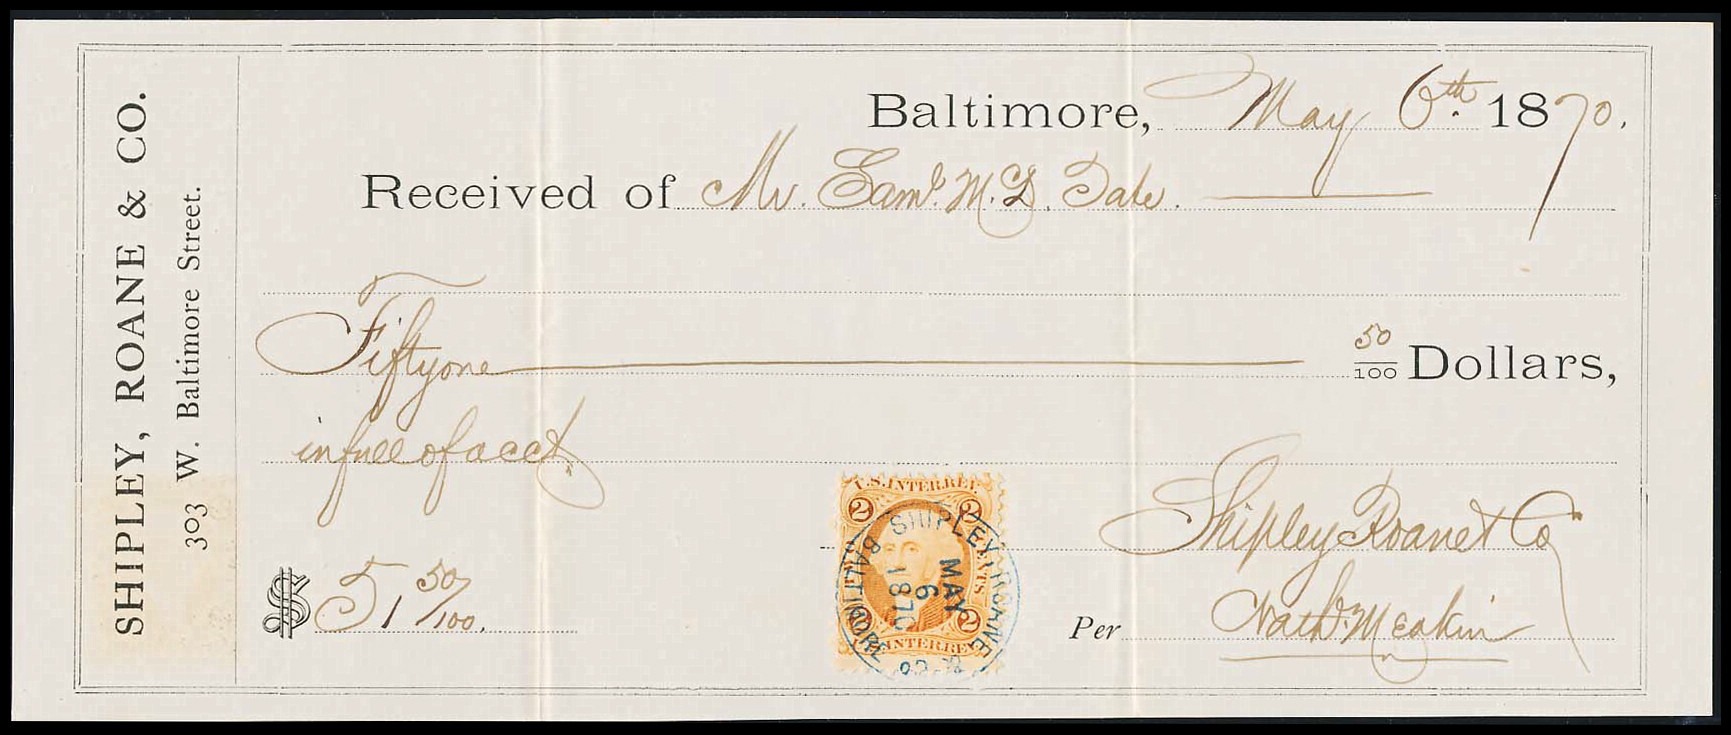 SHIPLEY, ROANE & CO.
303 W. Baltimore Street.
Baltimore, May 6th. 1870.
Received of Mr. Saml. McD. Tate.
Fiftyone 50/100 Dollars,
in full of acct.
$51 50/100.
U.S. INTER. REV.
2 2
CTS.
2
INTER. REV.
SHIPLEY, ROANE & CO.
MAY
6
1870
BALTIMORE
Shipley Roane & Co
Per Nathl. Meakin